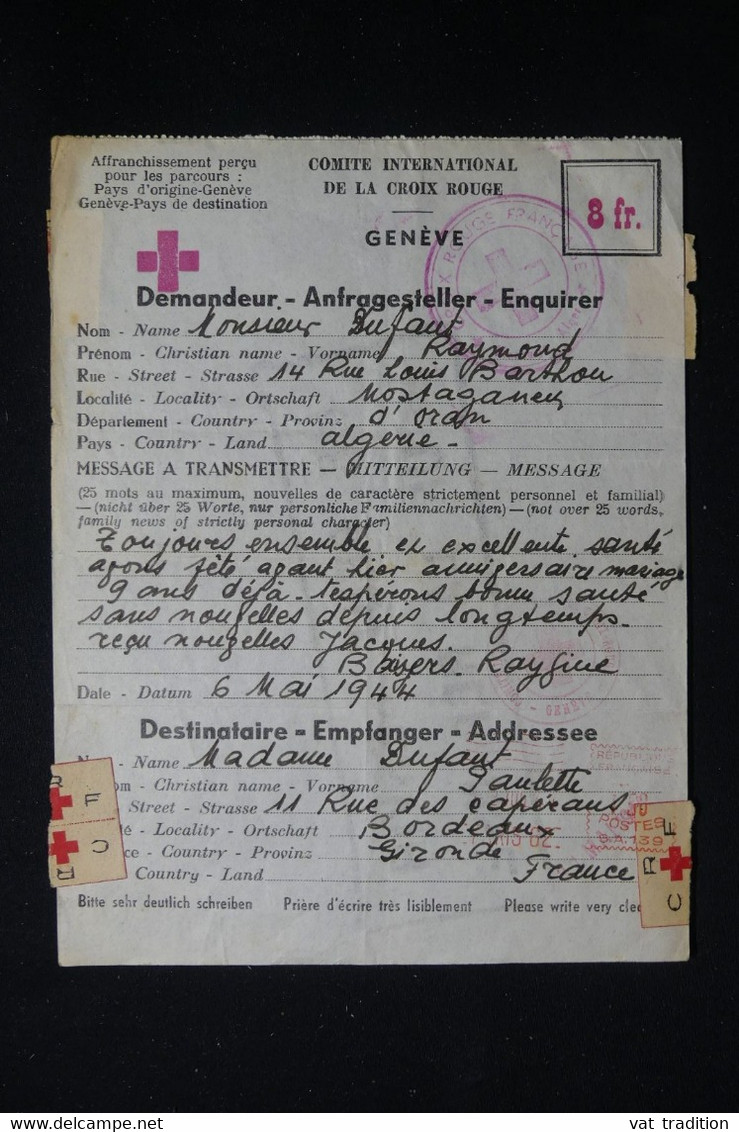 Affranchissement perçu
pour les parcours :
Pays d'origine-Genève
Genève-Pays de destination
COMITE INTERNATIONAL
DE LA CROIX ROUGE
GENÈVE
8 fr.
ROUGE FRANÇAISE
Demandeur - Anfragesteller - Enquirer
Nom - Name Monsieur Dufaut
Prénom - Christian name - Vorname Raymond
Rue - Street - Strasse 14 Rue Louis Barthou
Localité - Locality - Ortschaft Mostaganem
Département - Country - Provinz d'Oran
Pays - Country - Land algérie -
MESSAGE A TRANSMETTRE — MITTEILUNG — MESSAGE
(25 mots au maximum, nouvelles de caractère strictement personnel et familial)
—(nicht über 25 Worte, nur personliche Familiennachrichten)—(not over 25 words,
family news of strictly personal character)
Toujours ensemble en excellente santé
avons fêté avant hier anniversaire mariage
9 ans déjà - espérons bonne santé
sans nouvelles depuis longtemps -
reçu nouvelles Jacques.
Baisers - Raygine
Date - Datum 6 Mai 1944
Destinataire - Empfanger - Addressee
Name Madame Dufaut
om - Christian name - Vorname Paulette
Street - Strasse 11 Rue des Capérans
té - Locality - Ortschaft Bordeaux
ce - Country - Provinz Gironde
Country - Land France
RÉPUBLIQUE
FRANÇAISE
POSTES
S.A.139
C R F
C R F
Bitte sehr deutlich schreiben Prière d'écrire très lisiblement Please write very clea
www.delcampe.net
vat tradition